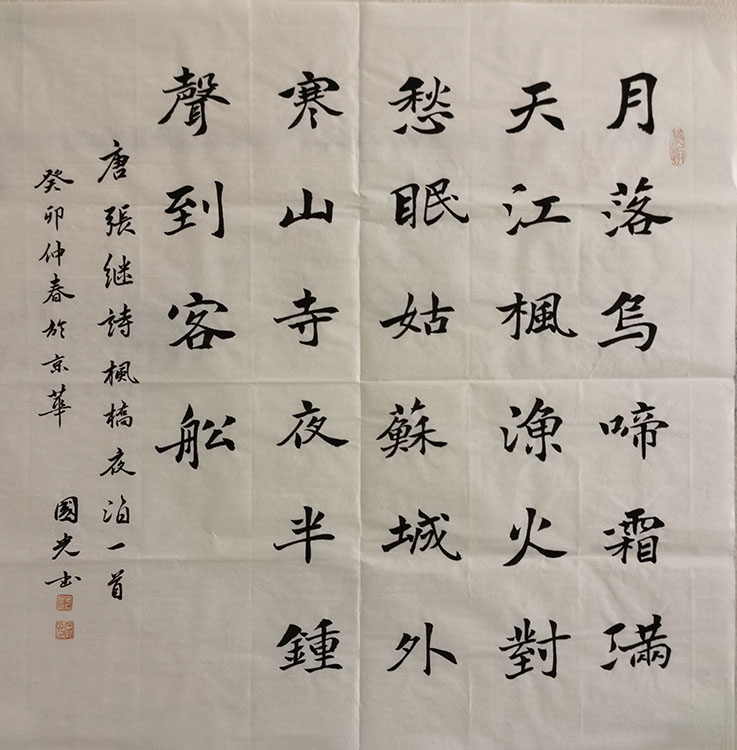 月落烏啼霜滿
天江楓漁火對
愁眠姑蘇城外
寒山寺夜半鍾
聲到客船
唐張继詩楓橋夜泊一首
癸卯仲春於京華
國光书